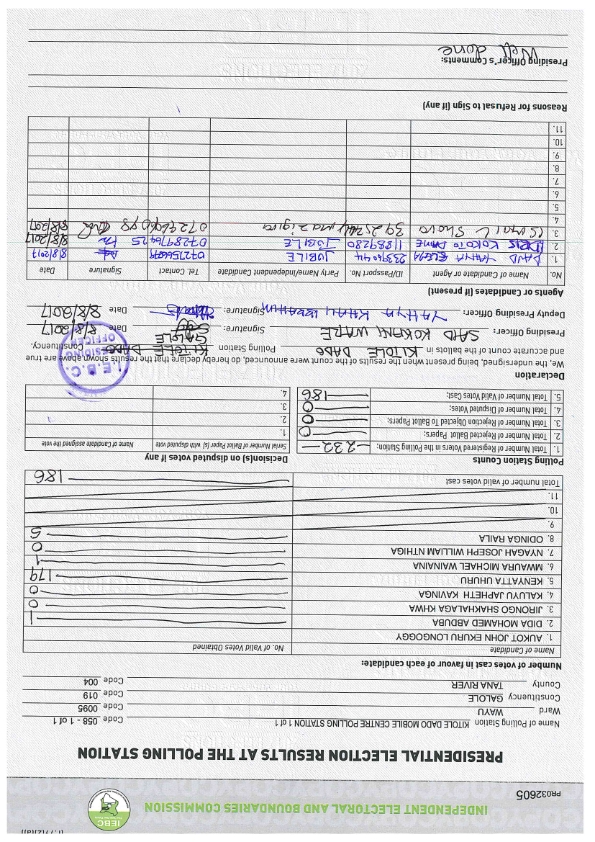 PR032605
INDEPENDENT ELECTORAL AND BOUNDARIES COMMISSION
IEBC
PRESIDENTIAL ELECTION RESULTS AT THE POLLING STATION
Name of Polling Station KITOLE MOBILE DADO CENTRE POLLING STATION 1 of 1 Code 058 - 1 of 1
Ward WAYU Code 0095
Constituency GALOLE Code 019
County TANA RIVER Code 004
Number of votes cast in favour of each candidate:
Name of Candidate No. of Valid Votes Obtained
1. AUKOT JOHN EKURU LONGOGGY
2. DIDA MOHAMED ABDUBA 1
3. JIRONGO SHAKHALAGA KHWA 0
4. KALUYU JAPHETH KAVINGA 0
5. KENYATTA UHURU 179
6. MWAURA MICHAEL WAINAINA 1
7. NYAGAH JOSEPH WILLIAM NTHIGA 0
8. ODINGA RAILA 5
9.
10.
11.
Total number of valid votes cast 186
Polling Station Counts
1. Total Number of Registered Voters in the Polling Station: 232
2. Total Number of Rejected Ballot Papers: 0
3. Total Number of Rejection Objected To Ballot Papers: 0
4. Total Number of Disputed Votes: 0
5. Total Number of Valid Votes Cast: 186
Decision(s) on disputed votes if any
Serial Number of Ballot Paper (s) with disputed vote Name of Candidate assigned the vote
1.
2.
3.
4.
Declaration
We, the undersigned, being present when the results of the count were announced, do hereby declare that the results shown above are true
and accurate count of the ballots in KITOLE DADO Polling Station KITOLE DADO Constituency.
GALOLE
I.E.B.C. PRESIDING OFFICER
Presiding Officer: SAID KOKANI WARE Signature: Date 8/8/2017
Deputy Presiding Officer: YAHYA KHALI IBRAHIM Signature: Date 8/8/2017
Agents or Candidates (if present)
No. Name of Candidate or Agent ID/Passport No. Party Name/Independent Candidate Tel. Contact Signature Date
1. SAID YAHYA 23394044 JUBILEE 8/8/2017
2. IDRIS KOKOTO 11889280 JUBILEE 8/8/2017
3. ISMAIL 8/8/2017
4.
5.
6.
7.
8.
9.
10.
11.
Reasons for Refusal to Sign (if any)
Presiding Officer's Comments: Well done